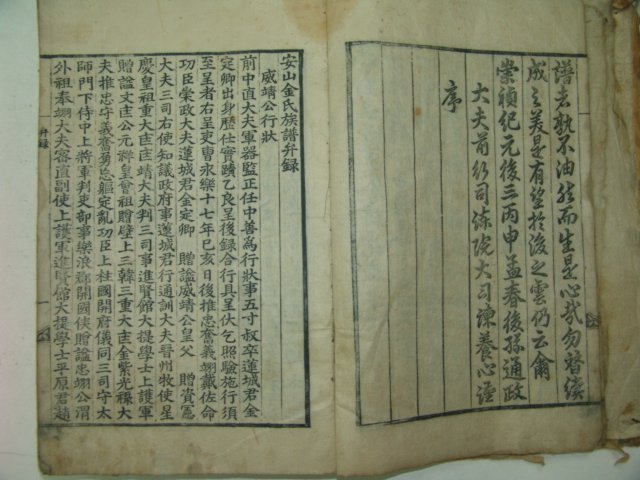 譜者孰不油然而生是心哉勿替續
成之美是有望於後之雲仍云爾
崇禎紀元後三丙申孟春後孫通政
大夫前行司諫院大司諫養心謹
序
安山金氏族譜弁錄
威靖公行狀
前中直大夫軍器監正任中善為行狀事五寸叔卒蓮城君金
定卿出身歷仕實蹟乙良呈後録合行具呈伏乞照驗施行須
至呈者右呈吏曹永樂十七年己亥日後推忠奮義翊戴佐命
功臣崇政大夫蓮城君金定卿 贈諡威靖公皇父 贈資憲
大夫三司右使知議政府事蓮城君行通訓大夫晉州牧使呈
慶皇祖重大匡匡靖大夫判三司事進賢館大提學士上護軍
贈諡文匡公元祥皇曾祖贈壁上三韓三重大匡金紫光祿大
夫推忠守義奮勇忘軀定亂功臣上柱國開府儀同三司守太
師門下侍中上將軍判吏部事樂浪郡開國侯贈諡忠翊公渭
外祖奉翊大夫密直副使上護軍進賢館大提學士平原君趙
弁錄
一